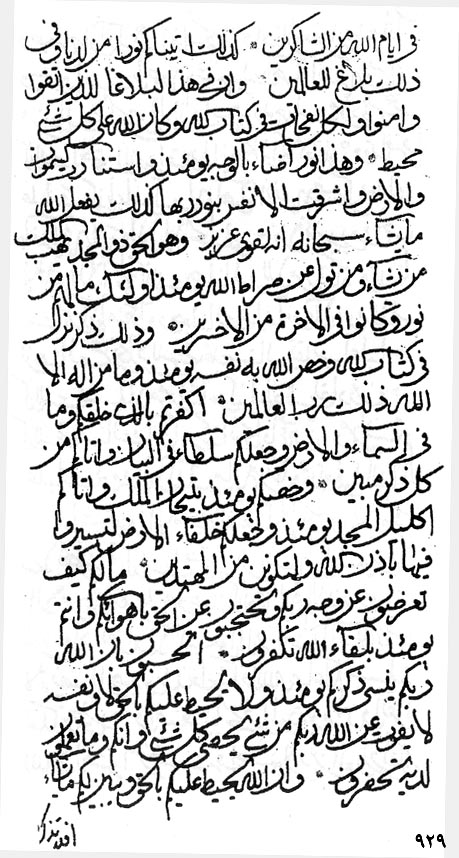 في ايام الله من الشاكرين * كذلك اتيناكم نورا من لدنا وفي
ذلك بلاغ للعالمين * وان في هذا لبلاغا للذين اتقوا
وامنوا ولكل نفحات في كتاب الله وكان الله على كل شئ
محيط * وهذا نور اضاء بالوجه يومئذ واستنارت السموات
والارض واشرقت الانفس بنور ربها كذلك يفعل الله
ما يشاء سبحانه انه لقوي عزيز * وهو الحق ذو المجد يهب الملك
من يشاء ومن تولى عن صراط الله يومئذ اولئك ما لهم من
نور وكانوا في الاخرة من الاخسرين * وذلك ذكر نزل
في كتاب الله وخص الله به نفسه يومئذ وما من اله الا
الله ذلك رب العالمين * اكفرتم بالذي خلقكم وما
في السماء والارض وجعلكم سلطاء في البيان واتاكم من
كل ذكر مبين * وخصكم يومئذ بتيجان الملك واتاكم
اكليل المجد يومئذ وجعلكم خلفاء الارض لتسيروا
فيها باذن الله ولتكونن من المهتدين * ما لكم كيف
تعرضون عن وجه ربكم وتحتجبون عن الحق باهوائكم وانتم
يومئذ بلقاء الله تكفرون * اتحسبون بان الله
ربكم ينسى ذكركم يومئذ ولا يحيط عليكم بالحق لا ونفسه
لا يفوت عن الله ربكم من شئ يحصي كل شئ وانكم وما تعملون
لديه تحضرون * وان الله يحيط عليكم بالحق ويبين لكم ما يشاء
افلا تذكرون
٩٢٩